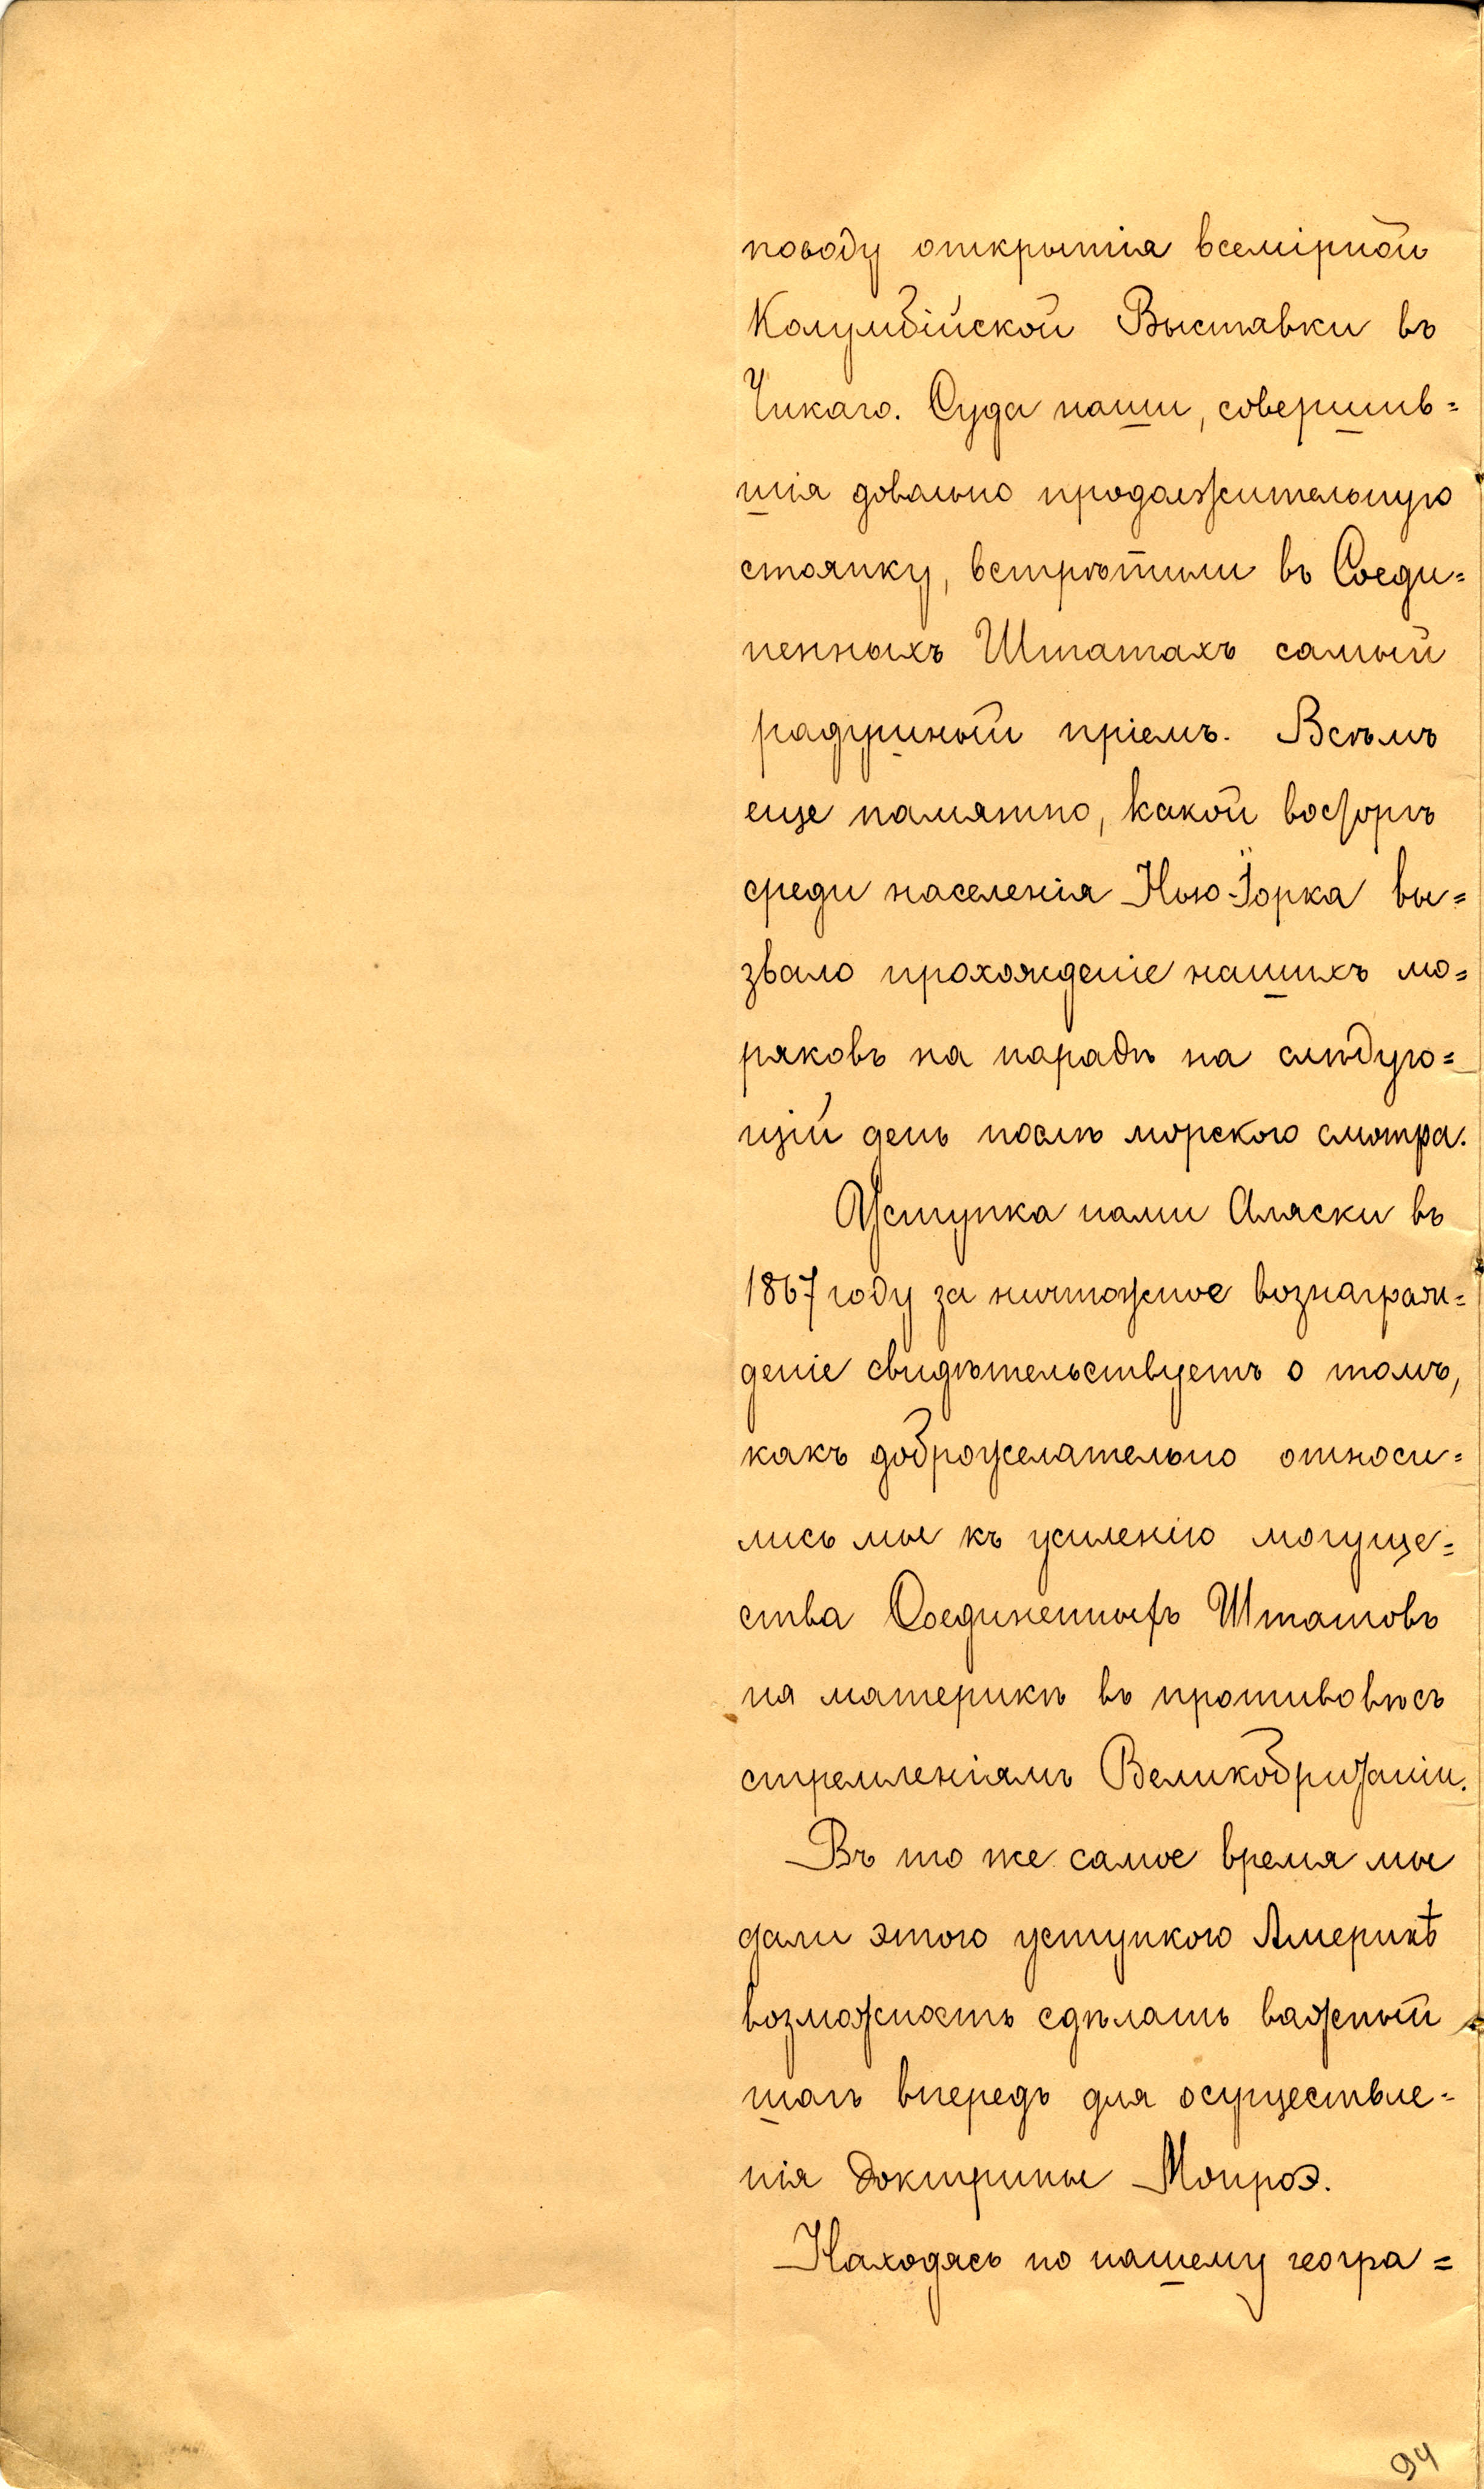 поводу открытія всемірной
Колумбійской Выставки въ
Чикаго. Суда наши, совершив=
шія довольно продолжительную
стоянку, встрѣтили въ Соеди=
ненныхъ Штатахъ самый
радушный пріемъ. Всѣмъ
еще памятно, какой восторгъ
среди населенія Нью-Іорка вы=
звало прохожденіе нашихъ мо=
ряковъ на парадѣ на слѣдую=
щій день послѣ морского смотра.
Уступка нами Аляски въ
1867 году за ничтожное вознаграж=
деніе свидѣтельствуетъ о томъ,
какъ доброжелательно относи=
лись мы къ усиленію могуще=
ства Соединенныхъ Штатовъ
на материкѣ въ противовѣсъ
стремленіямъ Великобританіи.
Въ то же самое время мы
дали этою уступкою Америкѣ
возможность сдѣлать важный
шагъ впередъ для осуществле=
нія доктрины Монроэ.
Находясь по нашему геогра=
94